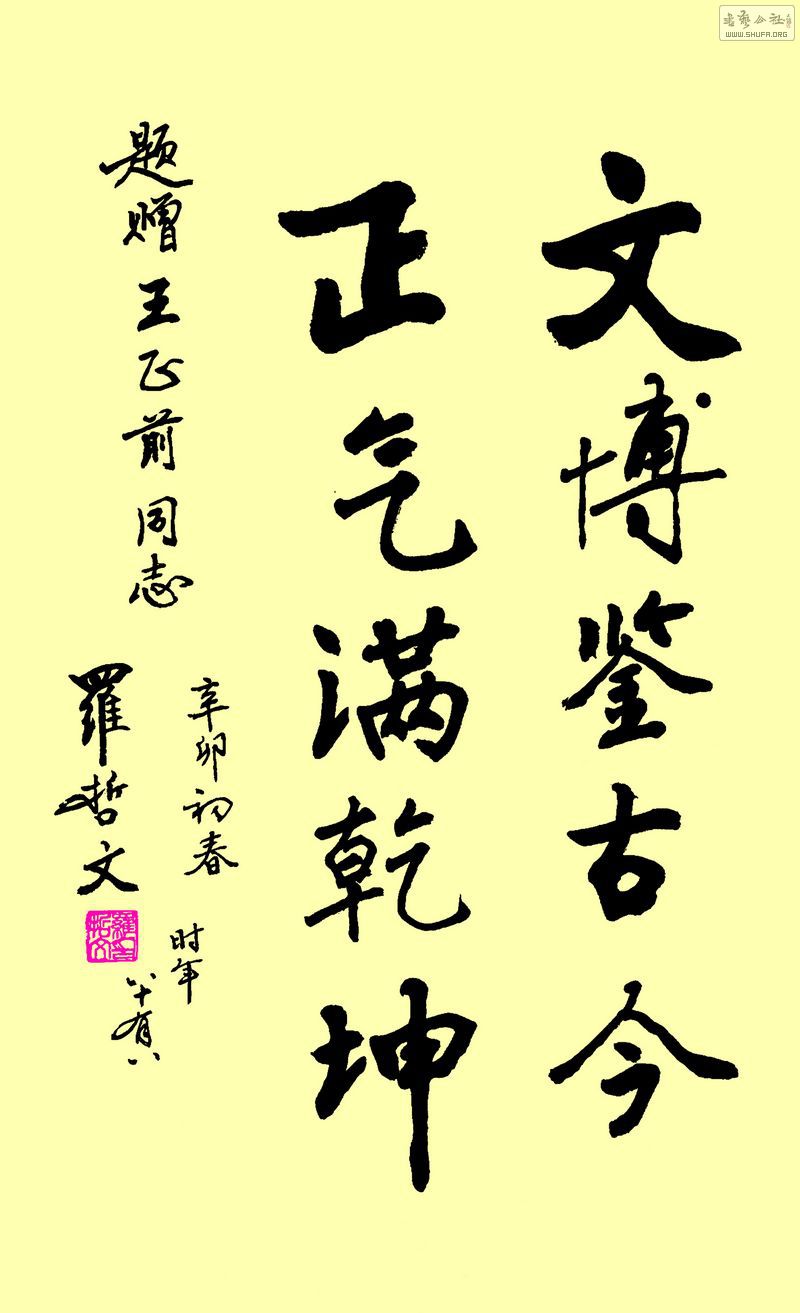 文博鉴古今
正气满乾坤
题赠王正前同志
辛卯初春
羅哲文
时年
八十有八
書藝公社
WWW.SHUFA.ORG